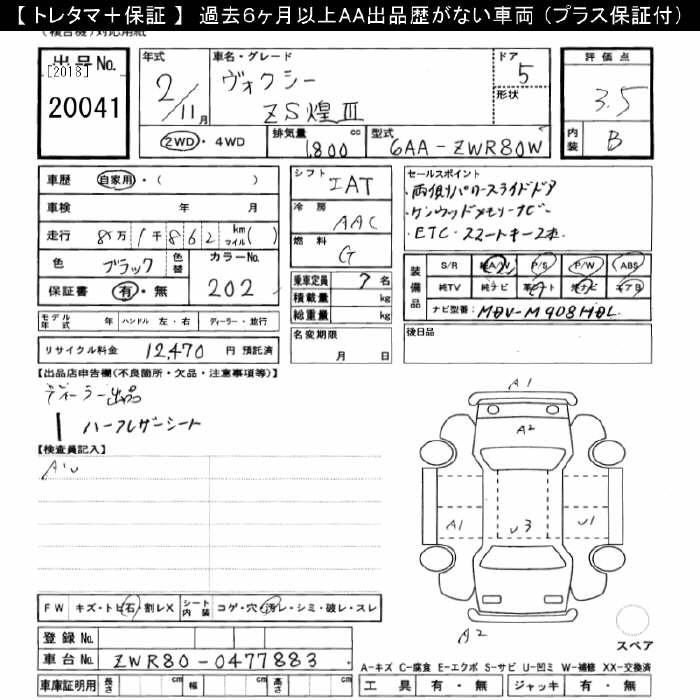 【トレタマ＋保証】 過去６ヶ月以上ＡＡ出品歴がない車両（プラス保証付）
(複合機)対応用紙
出品No. [2018] 20041
年式 2/11月
車名・グレード ヴォクシー ZS煌Ⅲ
ドア 5
形状
評価点 3.5
内装 B
2WD・4WD
排気量 1,800 cc
型式 6AA-ZWR80W
車歴 自家用・( )
車検 年 月
走行 8万1千862 km マイル( )
色 ブラック 色替 カラーNo. 202
保証書 有・無
モデル年式 年 ハンドル 左・右 ディーラー・並行
リサイクル料金 12,470 円 預託済
シフト IAT
冷房 AAC
燃料 G
乗車定員 7 名
積載量 kg
総重量 kg
名変期限 月 日
セールスポイント
・両側パワースライドドア
・ケンウッドメモリーナビー
・ETC・スマートキー2本
装備品 S/R 純A/W P/S P/W ABS
純TV 純ナビ 革シート 社ナビ エアB
ナビ型番: MDV-M908HDL
後日品
【出品店申告欄(不良箇所・欠品・注意事項等)】
ディーラー出品
ハーフレザーシート
【検査員記入】
A1 A2
A1 U3 U1
A2
スペア
FW キズ・トビ石・割レX シート内装 コゲ・穴・汚レ・シミ・破レ・スレ
登録No.
車台No. ZWR80-0477883
車庫証明用 長さ cm 幅 cm 高さ cm
A-キズ C-腐食 E-エクボ S-サビ U-凹ミ W-補修 XX-交換済
工具 有・無 ジャッキ 有・無